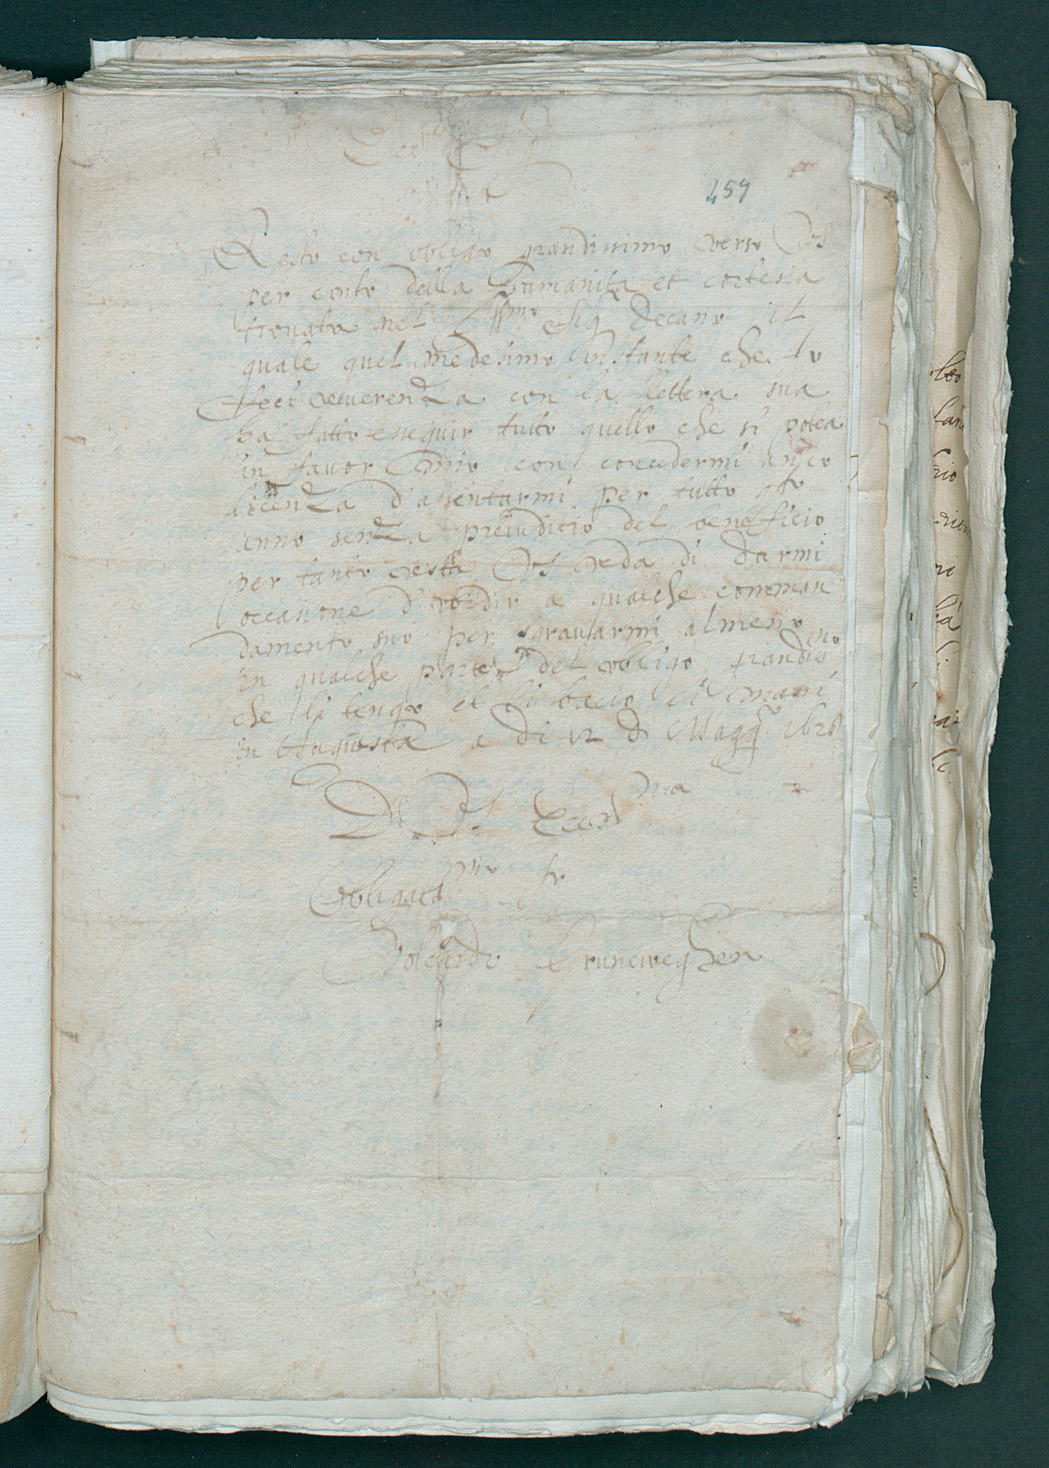 457
Resto con obligo grandissimo verso VS
per conto della Humanita et cortesia
trouata nel Illmo Sig Decano il
quale quel medesimo instante che Io
feci reuerenza con la lettera sua
ha fatto esseguir tutto quello che si potea
in fauor mio con concedermi anco
licenza d'assentarmi per tutto qsto
anno senza preiuditio del beneficio
per tanto resta VS veda di darmi
occasione d'vbidir a qualche comman
damento suo per sgrauarmi almeno
in qualche parte del obligo grandmo
che li tengo et li bacio le mani
in Augusta a di 12 di Magg 1628
D V S Eccma
Obligatmo
Volcardo